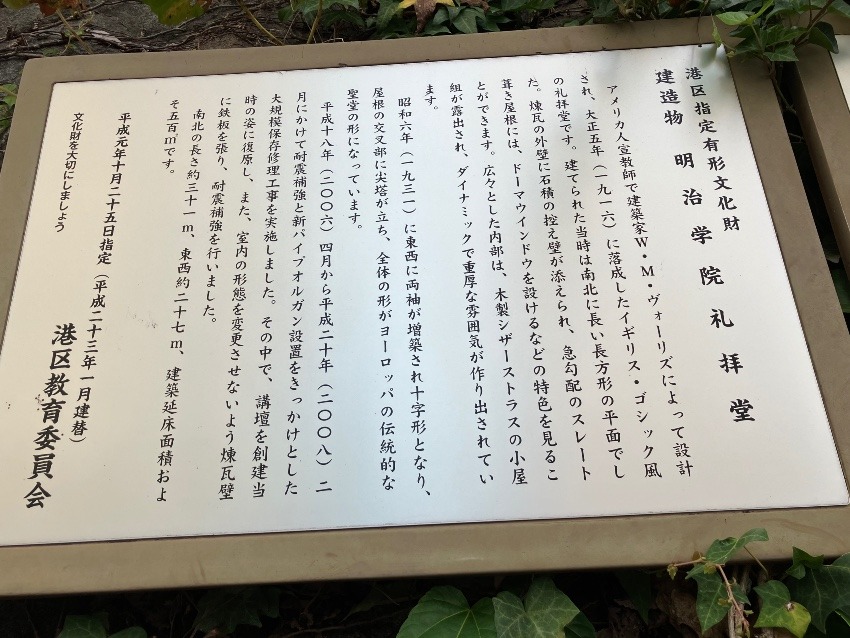 港区指定有形文化財
建造物　明治学院礼拝堂
アメリカ人宣教師で建築家W・M・ヴォーリズによって設計
され、大正五年（一九一六）に落成したイギリス・ゴシック風
の礼拝堂です。建てられた当時は南北に長い長方形の平面でし
た。煉瓦の外壁に石積の控え壁が添えられ、急勾配のスレート
葺き屋根には、ドーマウインドウを設けるなどの特色を見るこ
とができます。広々とした内部は、木製シザーストラスの小屋
組が露出され、ダイナミックで重厚な雰囲気が作り出されてい
ます。
昭和六年（一九三一）に東西に両袖が増築され十字形となり、
屋根の交叉部に尖塔が立ち、全体の形がヨーロッパの伝統的な
聖堂の形になっています。
平成十八年（二〇〇六）四月から平成二十年（二〇〇八）二
月にかけて耐震補強と新パイプオルガン設置をきっかけとした
大規模保存修理工事を実施しました。その中で、講壇を創建当
時の姿に復原し、また、室内の形態を変更させないよう煉瓦壁
に鉄板を張り、耐震補強を行いました。
南北の長さ約三十一m、東西約二十七m、建築延床面積およ
そ五百㎡です。
平成元年十月二十五日指定（平成二十三年一月建替）
文化財を大切にしましょう
港区教育委員会